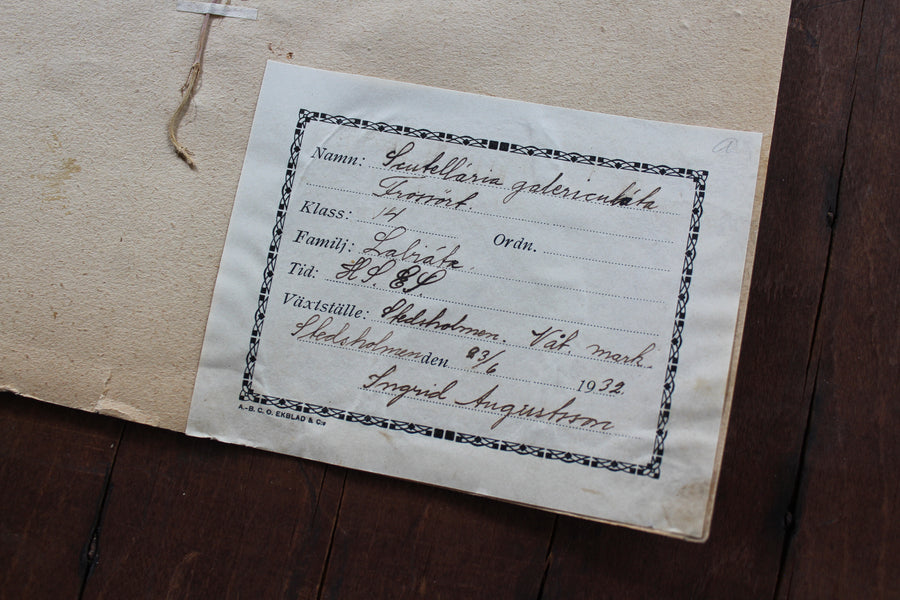 a
Namn: Scutellária galericuláta
Frossört.
Klass: 14 Ordn.
Familj: Labiátæ.
Tid: HS. ES
Växtställe: Stedsholmen. Våt. mark.
Stedsholmen den 23/6 1932
Ingrid Augustsson
A.-B. C. O. EKBLAD & C:o